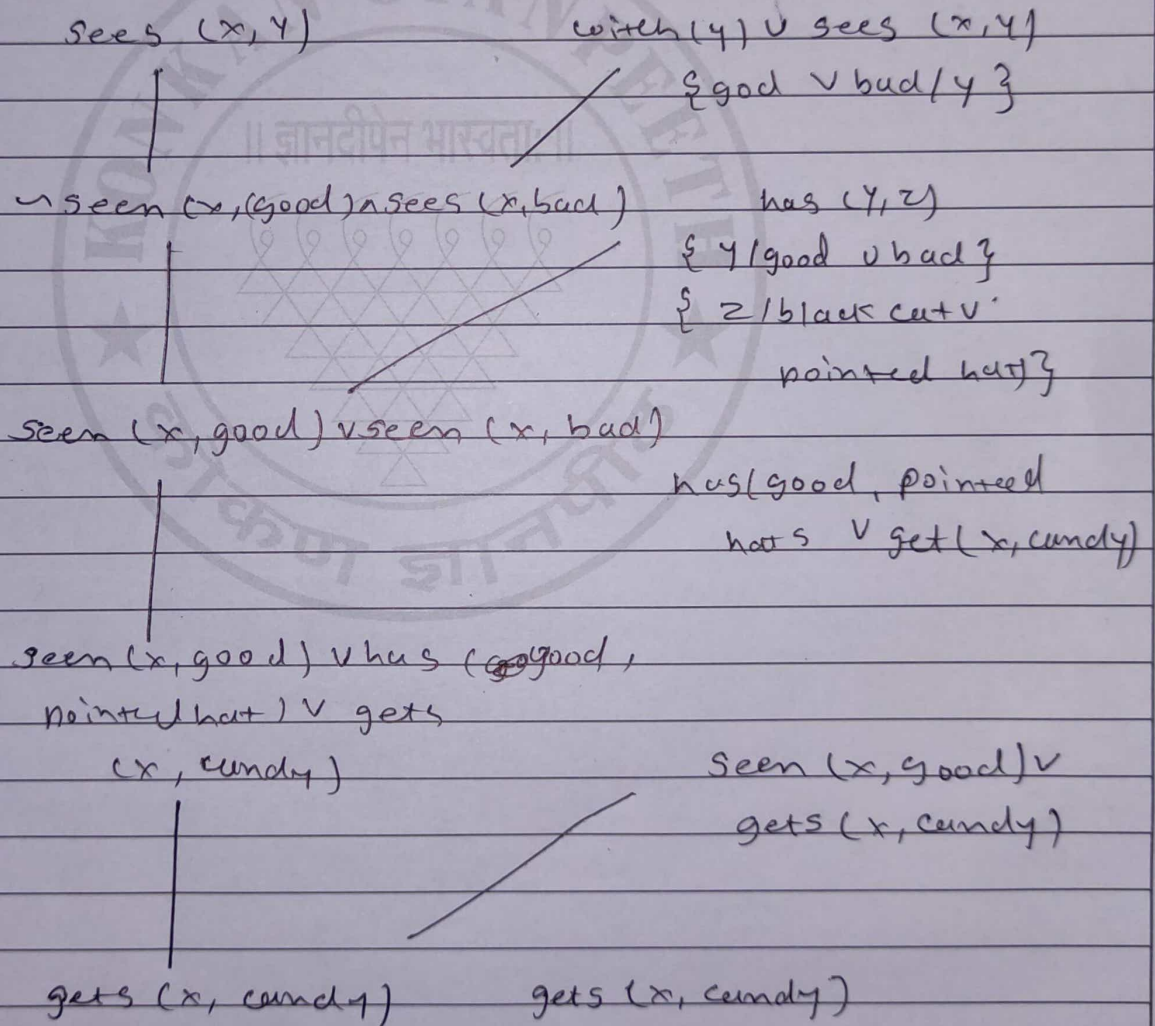 sees (x, y) witch (y) ∨ sees (x, y)
{good ∨ bad / y}
॥ ज्ञानदीपेन भास्वता ॥
~ seen (x, (good) ∧ sees (x, bad) has (y, z)
{ y / good ∨ bad }
{ z / black cat ∨
pointed hat) }
seen (x, good) ∨ seen (x, bad)
has (good, pointeed
hats ∨ get (x, candy)
seen (x, good) ∨ has (good,
pointed hat) ∨ gets
(x, candy) seen (x, good) ∨
gets (x, candy)
gets (x, candy) gets (x, candy)